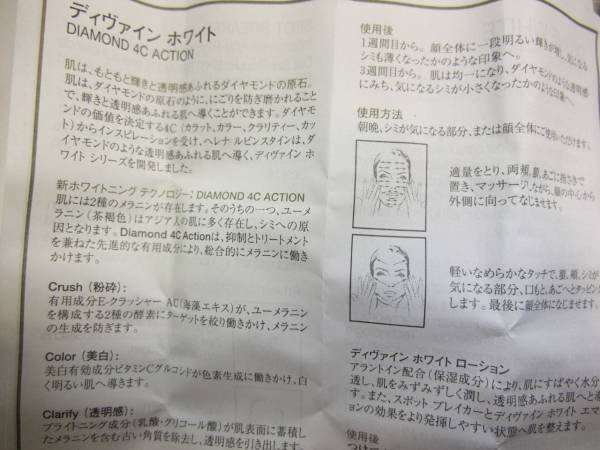 ディヴァイン ホワイト
DIAMOND 4C ACTION
肌は、もともと輝きと透明感あふれるダイヤモンドの原石。
肌は、ダイヤモンドの原石のように、にごりを防ぎ磨かれること
で、輝きと透明感あふれる肌へ導くことができます。ダイヤモ
ンドの価値を決定する4C (カラット、カラー、クラリティー、カッ
ト)からインスピレーションを受け、ヘレナ ルビンスタインは、ダイ
ヤモンドのような透明感あふれる肌へ導く、ディヴァイン ホ
ワイト シリーズを開発しました。
新ホワイトニング テクノロジー: DIAMOND 4C ACTION
肌には2種のメラニンが存在します。そのうちの一つ、ユーメ
ラニン(茶褐色)はアジア人の肌に多く存在し、シミへの原
因となります。Diamond 4C Actionは、抑制とトリートメント
を兼ねた先進的な有用成分により、総合的にメラニンに働き
かけます。
Crush (粉砕):
有用成分E-クラッシャー AC(海藻エキス)が、ユーメラニン
を構成する2種の酵素にターゲットを絞り働きかけ、メラニン
の生成を防ぎます。
Color (美白):
美白有効成分ビタミンCグルコシドが色素生成に働きかけ、白
く明るい肌へ導きます。
Clarify (透明感):
ブライトニング成分(乳酸・グリコール酸)が肌表面に蓄積し
たメラニンを含む古い角質を除去し、透明感を引き出します。
使用後
1週間目から。顔全体に一段明るい輝きが増し、気になる
シミも薄くなったかのような印象へ。
3週間目から。肌は均一になり、ダイヤモンドのような透明感
にみち、気になるシミが小さくなったかのような印象へ。
使用方法
朝晩、シミが気になる部分、または顔全体にご使用いただけます。
適量をとり、両頬、額、あごに指さきで
置き、マッサージしながら、顔の中心から
外側に向ってなじませます。
軽いなめらかなタッチで、額、頬、シミが
気になる部分、口もと、あごへとタッピング
します。最後に顔全体になじませます。
ディヴァイン ホワイト ローション
アラントイン配合(保湿成分)により、肌にすばやく水分
透し、肌をみずみずしく潤し、透明感あふれる肌へと
す。また、スポット ブレイカーとディヴァイン ホワイト エマ
ョンの効果をより発揮しやすい状態へ肌を整えます。
使用後